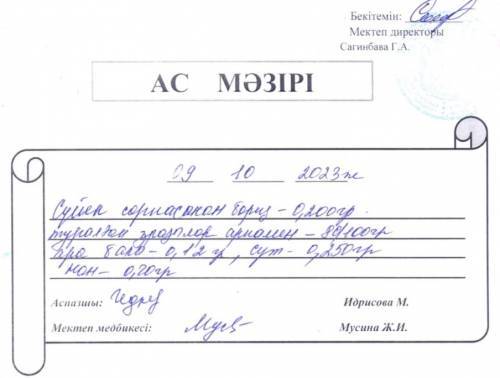 Бекітемін:
Мектеп директоры
Сагинбава Г.А.
АС МӘЗІРІ
09 10 2023ж
Сүйек сорпасынан борщ – 0,200гр.
туралған – 80/100гр
– 0,12 гр, сүт – 0,250гр
нан – 0,20гр
Аспазшы: Идрисова М.
Мектеп медбикесі: Мусина Ж.И.